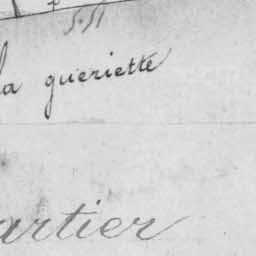 5.51
la gueriette
artier